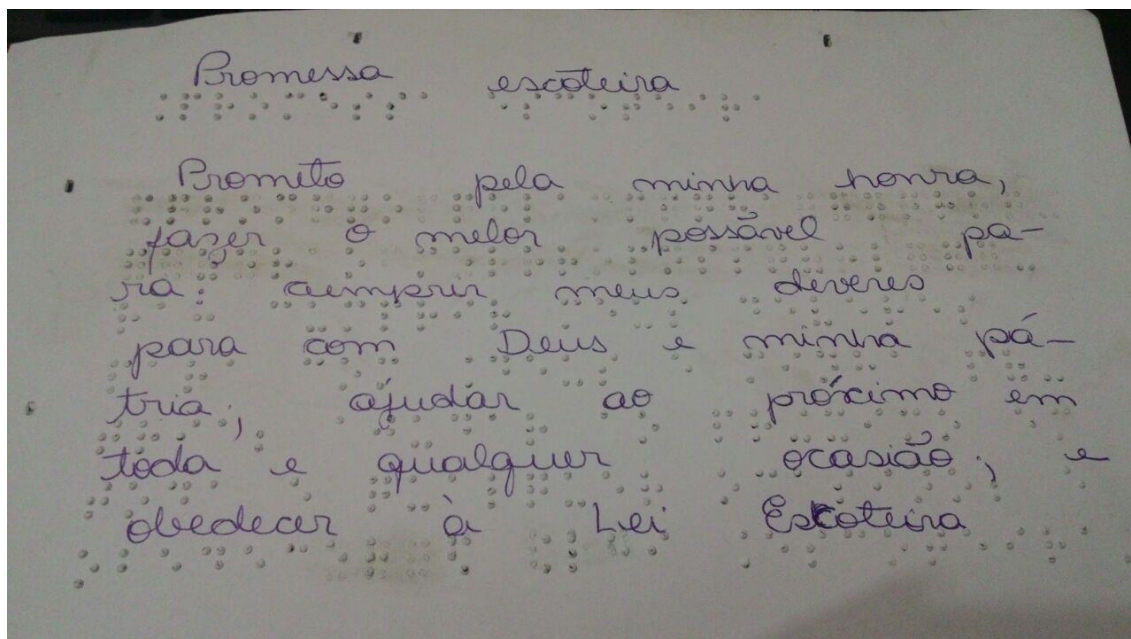 Promessa escoteira
Prometo pela minha honra,
fazer o melor possível pa-
ra: cumprir meus deveres
para com Deus e minha pá-
tria; ajudar ao próximo em
toda e qualquer ocasião; e
obedecer à Lei Escoteira